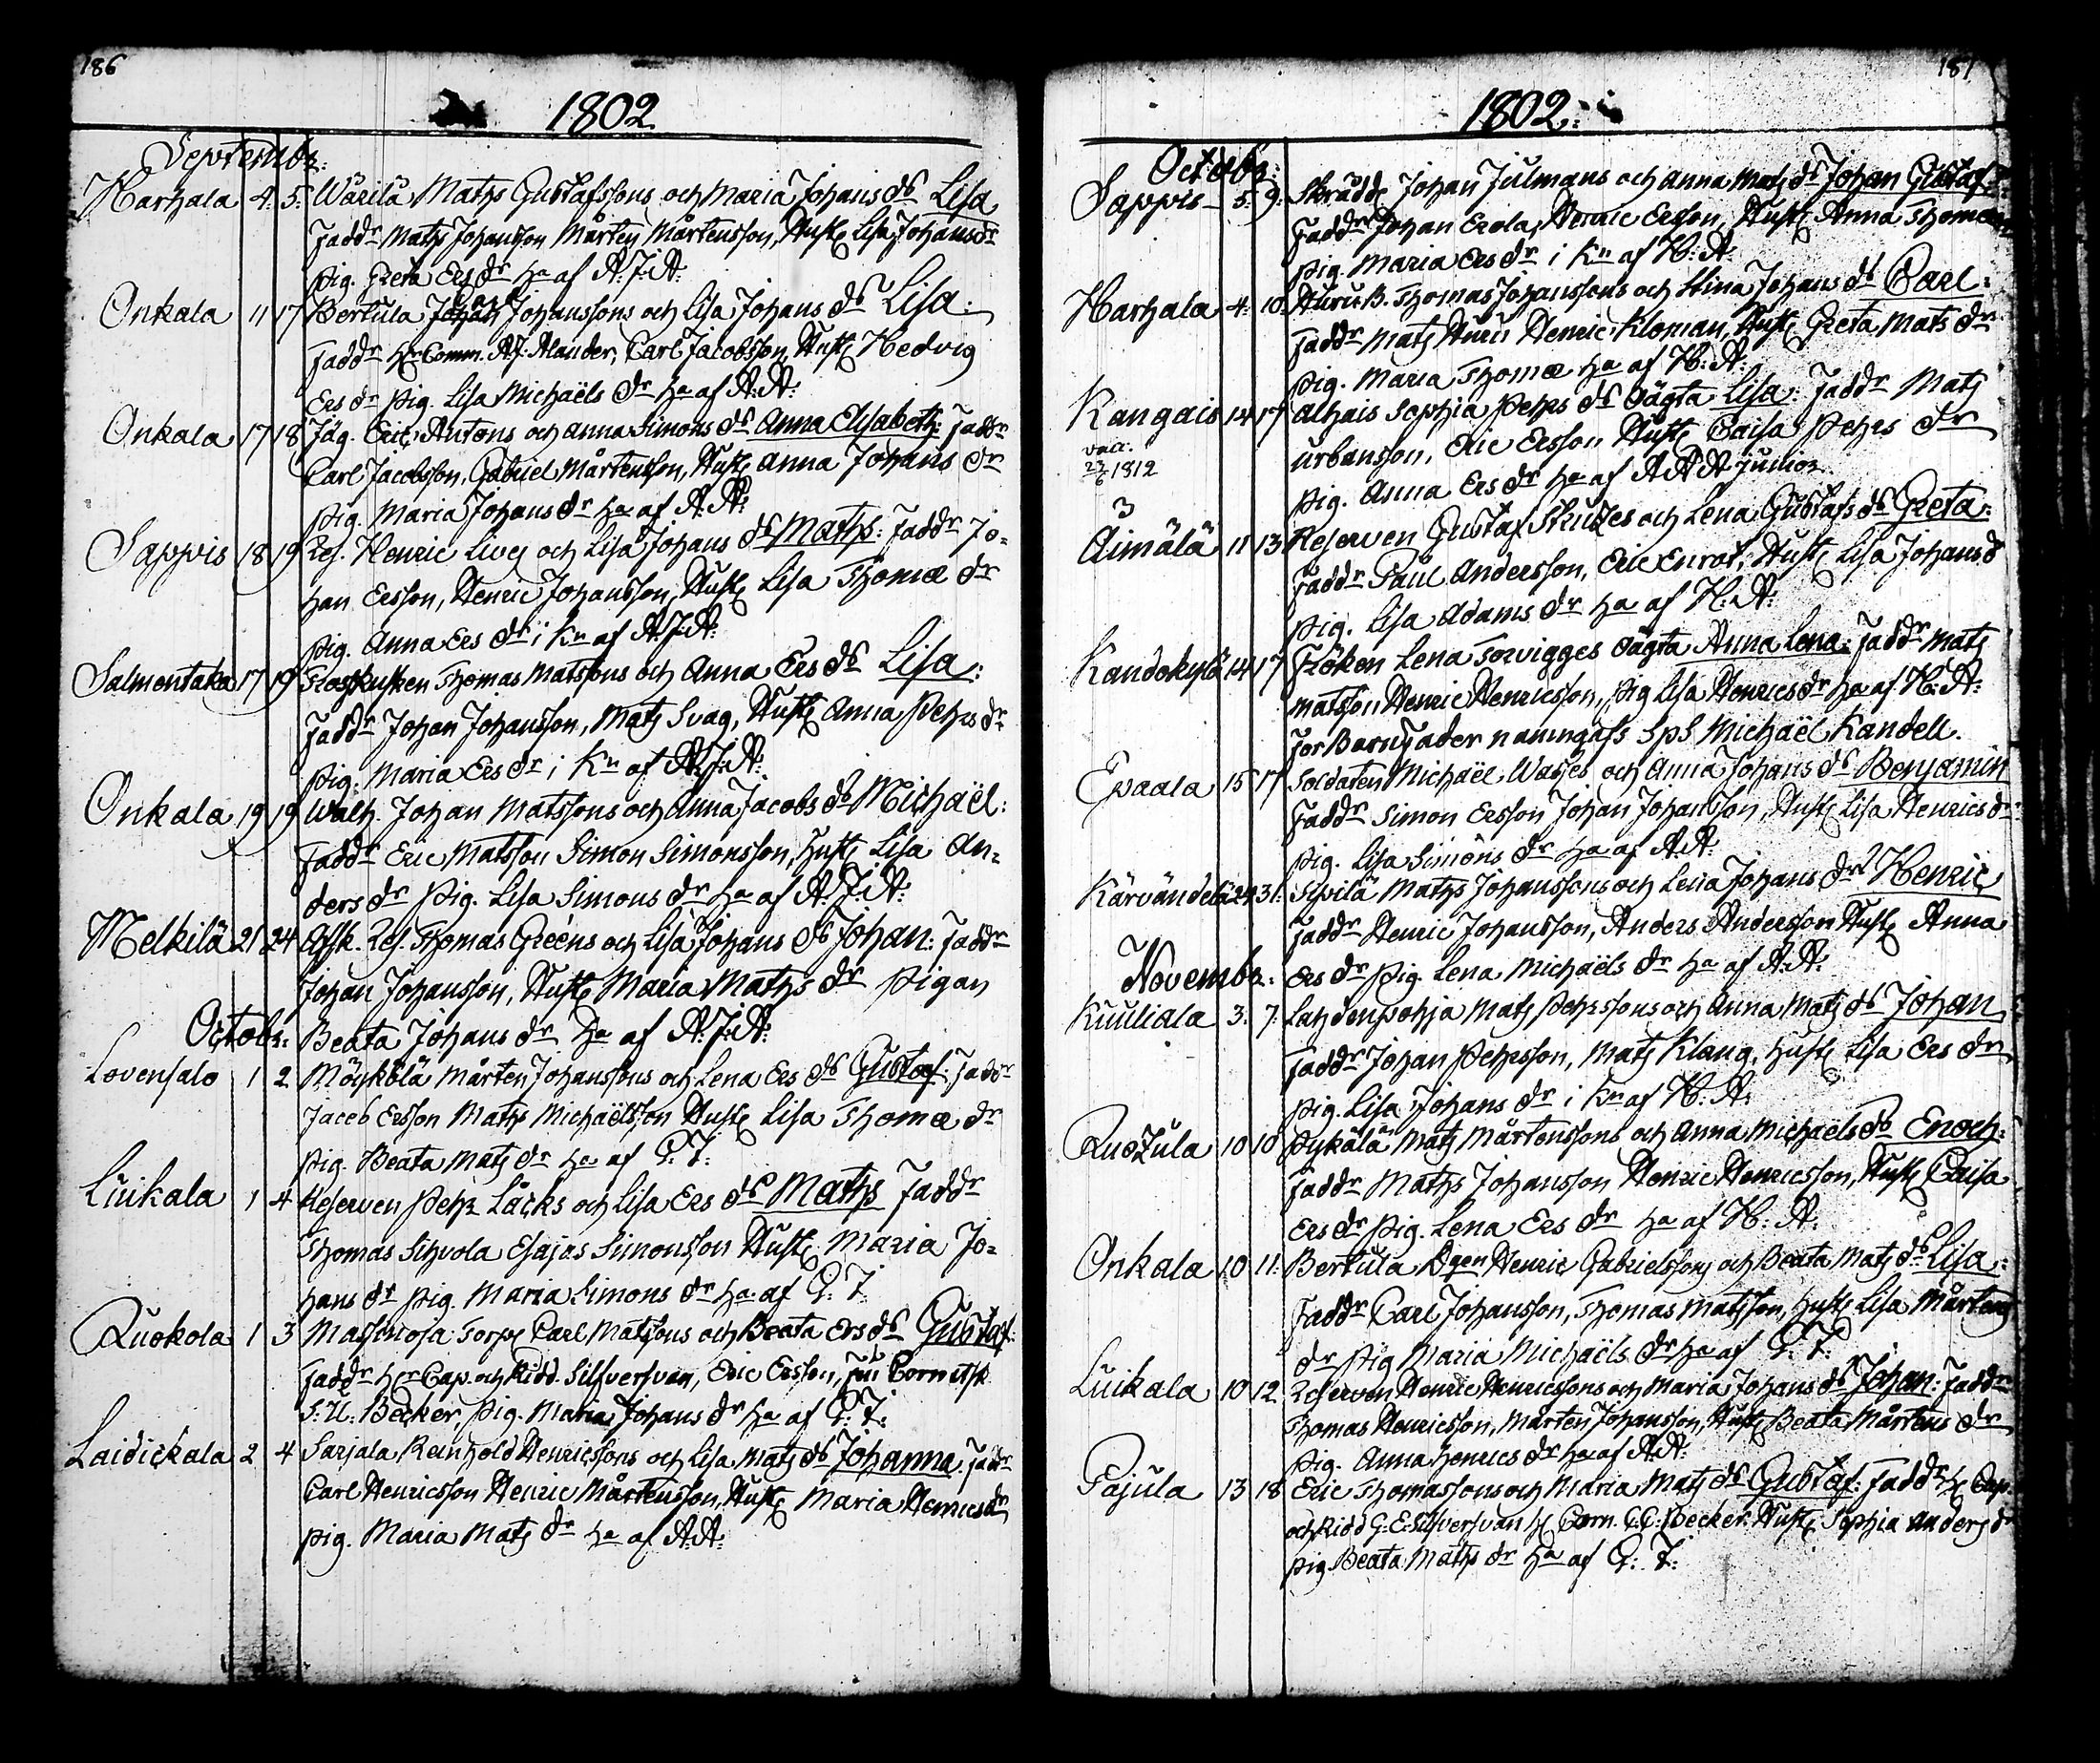 186
1802
Septembr:
Harhala 4. 5. Wärilä Mathz Gustafssons och Maria Johans ds Lisa
Faddr Maths Johansson Mårten Mårtensson, Hust. Lisa Johans dr
pig. Greta Ers dr ha af A: J: A:
Onkala 11 17 Bertula Johan Carl Johanssons och Lisa Johans ds Lisa:
Faddr Hr Comm. A.J. Alander, Carl Jacobsson, Hust. Hedvig
Ers dr pig. Lisa Michaëls dr ha af A: A:
Onkala 17 18 Jäg. Eric Antons och Anna Simons ds Anna Elisabeth: Faddr
Carl Jacobsson, Gabriel Mårtensson, Hust. Anna Johans dr
pig. Maria Johans dr ha af A: A:
Sappis 18 19 Res. Henric Lives och Lisa Johans ds Maths: Faddr Jo=
han Ersson, Henric Johansson, Hust. Lisa Thomæ dr
pig. Anna Ers dr i Kn af A: J: A:
Salmentaka 17 19 Thomas Matssons och Anna Ers ds Lisa:
Faddr Johan Johansson, Mats Svag, Hust. Anna Pehrs dr
pig. Maria Ers dr i Kn af A: J: A:
Onkala 19 19 Walth. Johan Matssons och Anna Jacobs ds Michaël:
Faddr Eric Matsson Simon Simonsson, Hust. Lisa An=
ders dr pig. Lisa Simons dr ha af A: J: A:
Melkilä 21 24 Afsk. Res. Thomas Greéns och Lisa Johans ds Johan: Faddr
Johan Johansson, Hust. Maria Maths dr pigan
Octobr: Beata Johans dr ha af A: J: A:
Lovensalo 1 2 Möykölä Mårten Johanssons och Lena Ers ds Gustaf: Faddr
Jacob Ersson Maths Michaëlsson Hust. Lisa Thomæ dr
pig. Beata Mats dr ha af G: T:
Luikala 1 4 Reserven Pehr Låcks och Lisa Ers ds Maths Faddr
Thomas Sihvola Esajas Simonsson Hust. Maria Jo=
hans dr pig. Maria Simons dr ha af G: T:
Ruokola 1 3 Massinosa Torp. Carl Matssons och Beata Ers ds Gustaf:
Faddr Hr Cap. och Ridd. Silfversvan, Eric Ersson, Fru Cornetsk
S: U: Becker, pig. Maria Johans dr ha af G: T:
Laidickala 2 4 Sarjala Reinhold Henricssons och Lisa Mats ds Johanna: Faddr
Carl Henricsson Henric Mårtensson, Hust. Maria Henrics dr
pig. Maria Mats dr ha af A: A:
187
1802:
Octobr:
Sappis 5. 9. Skrädd. Johan Julmans och Anna Mats ds Johan Gustaf
Faddr Johan Erola, Henric Ersson, Hust. Anna Thomæ
pig. Maria Ers dr i Kn af H: A:
Harhala 4. 10. Huru B. Thomas Johanssons och Stina Johans ds Carl:
Faddr Mats Huru Henric Kloman, Hust. Greta Mats dr
pig. Maria Thomæ ha af H: A:
Kangais 14 17 Alhais Sophia Pehrs ds oägta Lisa: Faddr Mats
vacc. Urbansson, Eric Ersson Hust. Caisa Pehrs dr
23/6 1812 pig. Anna Ers dr ha af A A A junior.
3
Aimälä 11 13 Reserven Gustaf Strutzes och Lena Gustafs ds Greta:
Faddr Paul Andersson, Eric Enrot, Hust. Lisa Johans d
pig. Lisa Adams dr ha af H: A:
Kandokylä 14 17 Fröken Lena Torvigges oägta Anna Lena: Faddr Mats
Matsson Henric Henricsson, pig Lisa Henrics dr ha af H: A:
för Barnfader namngafs SpS Michaël Kandell.
Evaala 15 17 Soldaten Michaël Wases och Anna Johans ds Benjamin
Faddr Simon Ersson Johan Johansson, Hust. Lisa Henrics dr
pig. Lisa Simons dr ha af A: A:
Kärvändelä 24 31. Sipilä Maths Johanssons och Lena Johans dr Henric
Faddr Henric Johansson, Anders Andersson Hust. Anna
Novembr: Ers dr pig. Lena Michaëls dr ha af A: A:
Kuuliala 3. 7. Lahdenpohja Mats Pehrssons och Anna Mats ds Johan
Faddr Johan Pehrsson, Mats Klang, Hust. Lisa Ers dr
pig. Lisa Johans dr i Kn af H: A:
Rutzula 10 10 Pykälä Mats Mårtenssons och Anna Michaels ds Enoch:
Faddr Maths Johansson Henric Henricsson, Hust. Caisa
Ers dr pig. Lena Ers dr ha af H: A:
Onkala 10 11. Bertula Dgen Henric Gabrielssons och Beata Mats ds Lisa:
Faddr Carl Johansson, Thomas Matsson, Hust. Lisa Mårtens
dr pig Maria Michaëls dr ha af G: T:
Luikala 10 12 Reserven Henric Henricssons och Maria Johans ds Johan: Faddr
Thomas Henricsson, Mårten Johansson, Hust. Beata Mårtens dr
pig. Anna Henrics dr ha af A: A:
Pajula 13 18 Eric Thomassons och Maria Mats ds Gustaf: Faddr H. Cap.
och Ridd G: E: Silfversvan H. Corn. C.C: Becker. Hust. Sophia Anders dr
pig Beata Maths dr ha af G: T: